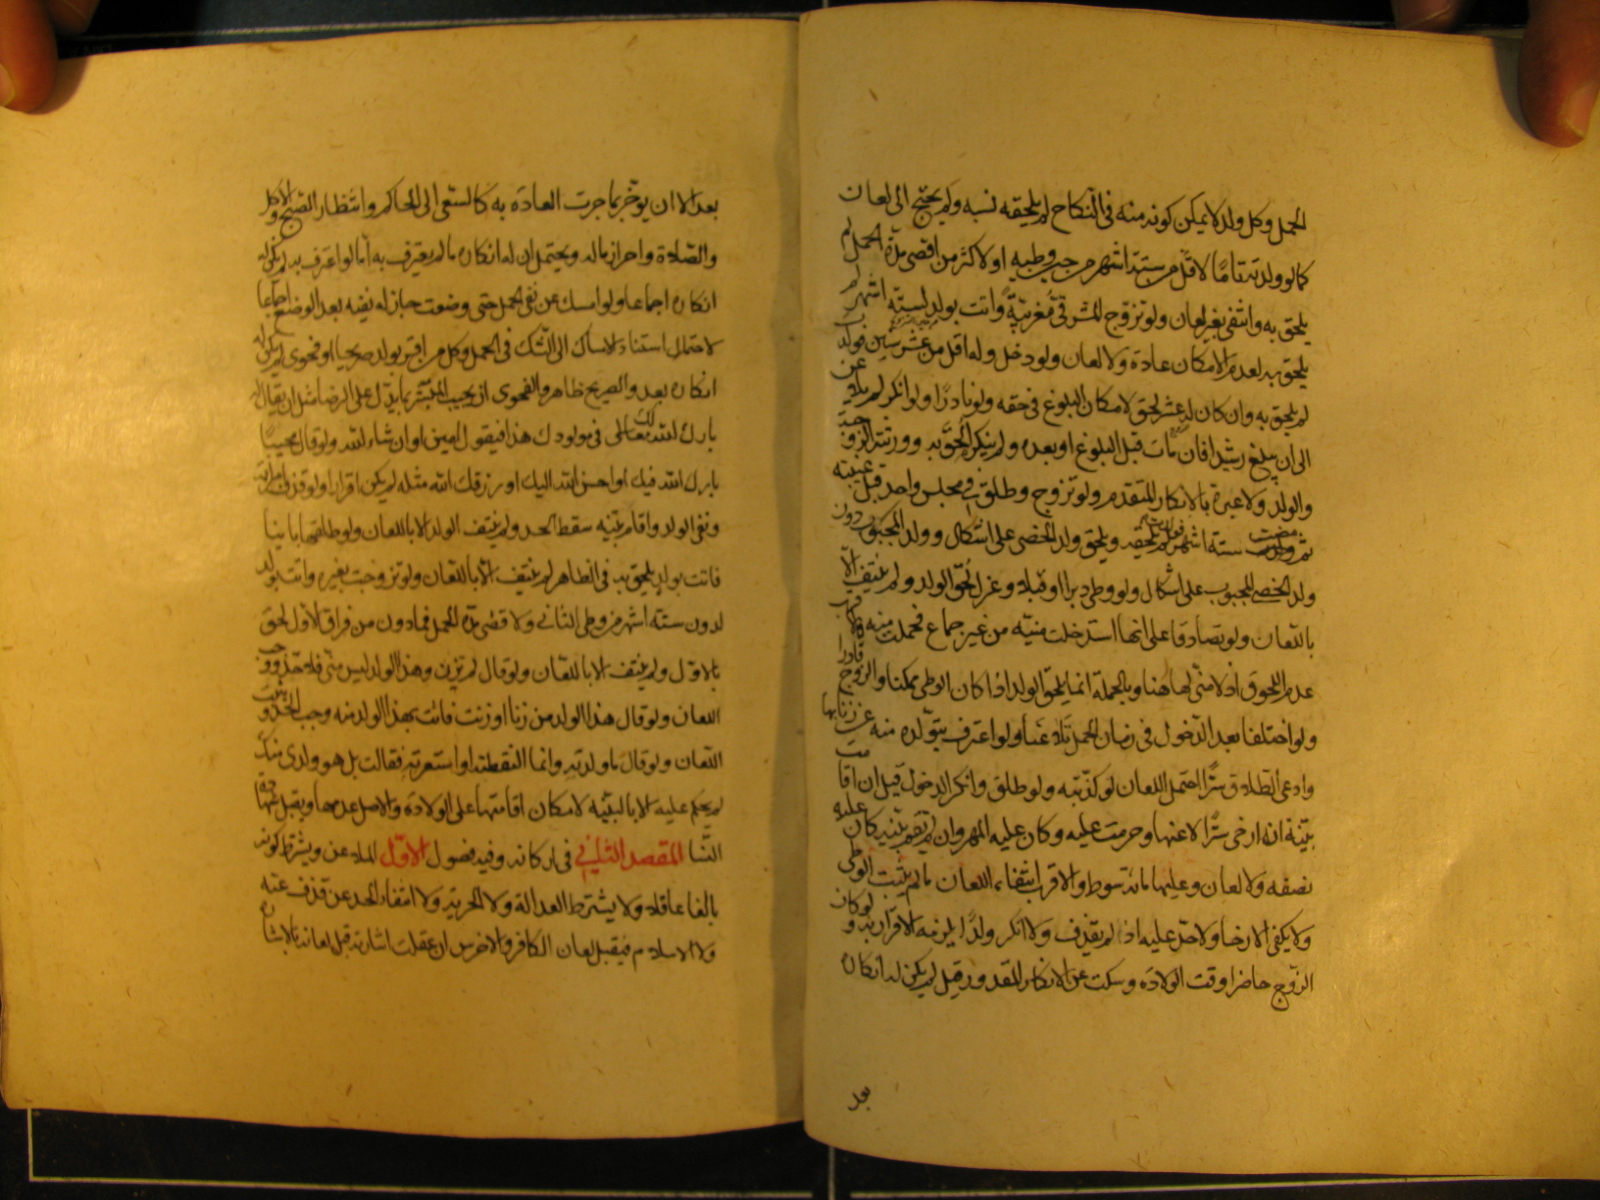 الحمل وكل ولد لا يمكن كونه منه في النكاح لم يلحقه نسبه ولم يحتج الى لعان
كما لو ولدته تاما لاقل من ستة اشهر من حين وطيه او لاكثر من اقصى مدة الحمل لم
يلحق به وانتفى بغير لعان ولو تزوج المشرقي مغربية واتت بولد لستة اشهر لم
يلحق به لعدم الامكان عادة ولا لعان ولو دخل وله اقل من عشر سنين فولدت
لم يلحق به وان كان له عشر لحق لامكان البلوغ في حقه ولو نادرا ولو انكر لم يلاعن
الى ان يبلغ رشيدا فان مات قبل البلوغ او بعده ولم ينكر الحق به وورثته الزوجة
والولد ولا عبرة بالانكار المتقدم ولو تزوج وطلق في مجلس واحد قبل غيبته
ثم مضت ستة اشهر فولدت لم يلحقه ويلحق ولد الخصي على اشكال وولد المجبوب دون
ولد الخصي المجبوب على اشكال ولو وطي دبرا او قبلا وعزل لحق الولد ولم ينتف الا
باللعان ولو تصادقا على انها استدخلت منيه من غير جماع فحملت منه فالاقرب
عدم اللحوق اذ لا مني لها هنا وبالجملة انما يلحق الولد اذا كان الوطي ممكنا والزوج قادرا
ولو اختلفا بعد الدخول في زمان الحمل تلاعنا ولو اعترف بتولده منه عن زنا بها
وادعى الطلاق سرا احتمل اللعان لو كذبته ولو طلق وانكر الدخول قيل ان اقامت
بينة انه ارخى سترا لاعنها وحرمت عليه وكان عليه المهر وان لم تقم بينة كان عليه
نصفه ولا لعان وعليها مائة سوط والاقرب انتفاء اللعان ما لم يثبت الوطي
ولا يكفي الارخاء ولا حد عليه اذا لم يقذف ولا انكر ولدا يلزمه الاقرار به ولو كان
الزوج حاضرا وقت الولادة وسكت عن الانكار المقدور قيل لم يكن له انكاره
بعد
بعد الا ان يؤخر بما جرت العادة به كالسعي الى الحاكم وانتظار الصبح والاكل
والصلاة واحراز ماله ويحتمل ان له انكاره ما لم يعترف به اما لو اعترف به لم يكن له
انكاره اجماعا ولو امسك عن نفي الحمل حتى وضعت جاز له نفيه بعد الوضع اجماعا
لاحتمال استناد الامساك الى الشك في الحمل وكل من اقر بولد صريحا او فحوى لم يكن له
انكاره بعد والصريح ظاهر والفحوى ان يجيب المبشر بما يدل على الرضا مثل ان يقال له
بارك الله تعالى لك في مولودك هذا فيقول امين او ان شاء الله ولو قال مجيبا
بارك الله فيك او احسن الله اليك او رزقك الله مثله لم يكن اقرارا ولو قذف امراته
ونفى الولد واقام بينة سقط الحد ولم ينتف الولد الا باللعان ولو طلقها باينا
فاتت بولد يلحق به في الظاهر لم ينتف الا باللعان ولو تزوجت بغيره واتت بولد
لدون ستة اشهر من وطي الثاني ولاقصى مدة الحمل فما دون من فراق الاول لحق
بالاول ولم ينتف الا باللعان ولو قال لم تزن وهذا الولد ليس مني فلا حد ووجب
اللعان ولو قال هذا الولد من زنا او زنت فاتت بهذا الولد منه وجب الحد ويثبت
اللعان ولو قال ما ولدته وانما التقطته او استعرته فقالت بل هو ولدي منك
لم يحكم عليه الا بالبينة لامكان اقامتها على الولادة والاصل عدمها ويقبل شهادة
النسا المقصد الثاني في اركانه وفيه فصول الاول الملاعن ويشترط كونه
بالغا عاقلا ولا يشترط العدالة ولا الحرية ولا انتفاء الحد عن قذف عنه
ولا الاسلام فيقبل لعان الكافر والاخرس ان عقلت اشارته قبل لعانه بالاشارة